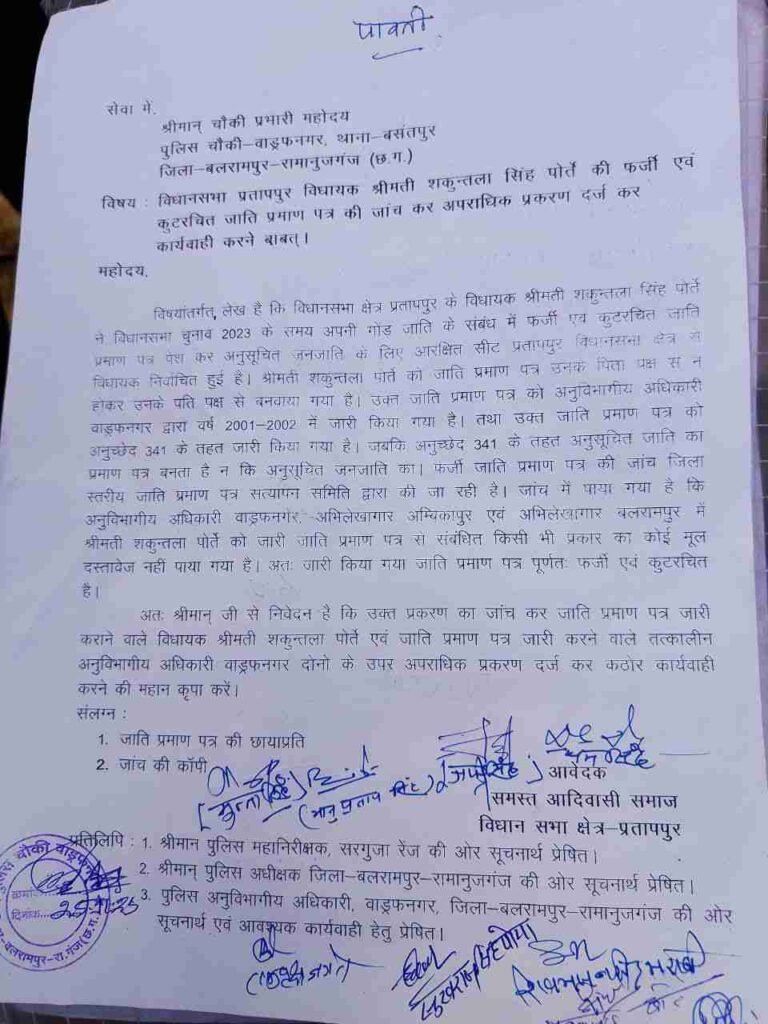 पावती
सेवा में,
श्रीमान् चौकी प्रभारी महोदय
पुलिस चौकी–वाड्रफनगर, थाना–बसंतपुर
जिला–बलरामपुर–रामानुजगंज (छ.ग.)
विषय : विधानसभा प्रतापपुर विधायक श्रीमती शकुन्तला सिंह पोर्ते की फर्जी एवं
कुटरचित जाति प्रमाण पत्र की जांच कर अपराधिक प्रकरण दर्ज कर
कार्यवाही करने बाबत्।
महोदय,
विषयांतर्गत, लेख है कि विधानसभा क्षेत्र प्रतापपुर के विधायक श्रीमती शकुन्तला सिंह पोर्ते
ने विधानसभा चुनाव 2023 के समय अपनी गोंड़ जाति के संबंध में फर्जी एवं कुटरचित जाति
प्रमाण पत्र पेश कर अनुसूचित जनजाति के लिए आरक्षित सीट प्रतापपुर विधानसभा क्षेत्र से
विधायक निर्वाचित हुई है। श्रीमती शकुन्तला पोर्ते को जाति प्रमाण पत्र उनके पिता पक्ष से न
होकर उनके पति पक्ष से बनवाया गया है। उक्त जाति प्रमाण पत्र को अनुविभागीय अधिकारी
वाड्रफनगर द्वारा वर्ष 2001–2002 में जारी किया गया है। तथा उक्त जाति प्रमाण पत्र को
अनुच्छेद 341 के तहत जारी किया गया है। जबकि अनुच्छेद 341 के तहत अनुसूचित जाति का
प्रमाण पत्र बनता है न कि अनुसूचित जनजाति का। फर्जी जाति प्रमाण पत्र की जांच जिला
स्तरीय जाति प्रमाण पत्र सत्यापन समिति द्वारा की जा रही है। जांच में पाया गया है कि
अनुविभागीय अधिकारी वाड्रफनगर, अभिलेखागार अम्बिकापुर एवं अभिलेखागार बलरामपुर में
श्रीमती शकुन्तला पोर्ते को जारी जाति प्रमाण पत्र से संबंधित किसी भी प्रकार का कोई मूल
दस्तावेज नहीं पाया गया है। अतः जारी किया गया जाति प्रमाण पत्र पूर्णतः फर्जी एवं कुटरचित
है।
अतः श्रीमान् जी से निवेदन है कि उक्त प्रकरण का जांच कर जाति प्रमाण पत्र जारी
कराने वाले विधायक श्रीमती शकुन्तला पोर्ते एवं जाति प्रमाण पत्र जारी करने वाले तत्कालीन
अनुविभागीय अधिकारी वाड्रफनगर दोनो के उपर अपराधिक प्रकरण दर्ज कर कठोर कार्यवाही
करने की महान कृपा करें।
संलग्न :
1. जाति प्रमाण पत्र की छायाप्रति
2. जांच की कॉपी
(भानु प्रताप सिंह)
आवेदक
समस्त आदिवासी समाज
विधान सभा क्षेत्र–प्रतापपुर
प्रतिलिपि : 1. श्रीमान पुलिस महानिरीक्षक, सरगुजा रेंज की ओर सूचनार्थ प्रेषित।
2. श्रीमान् पुलिस अधीक्षक जिला–बलरामपुर–रामानुजगंज की ओर सूचनार्थ प्रेषित।
3. पुलिस अनुविभागीय अधिकारी, वाड्रफनगर, जिला–बलरामपुर–रामानुजगंज की ओर
सूचनार्थ एवं आवश्यक कार्यवाही हेतु प्रेषित।
चौकी वाड्रफ
दिनांक
बलरामपुर–रा.गंज (छ.ग.)